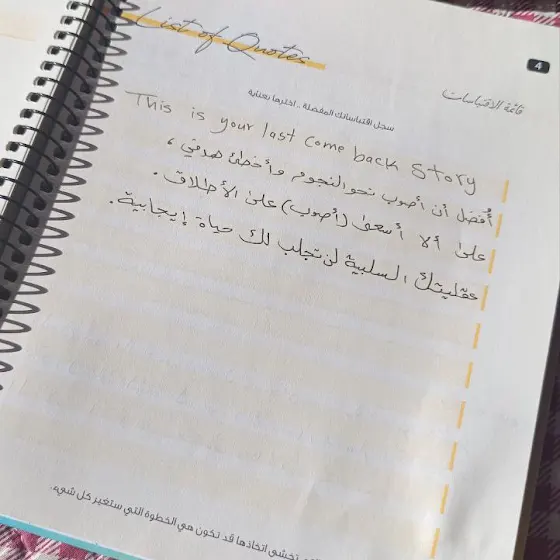 List of Quotes
4
قائمة الاقتباسات
سجل اقتباساتك المفضلة .. اختارها بعناية
This is your last come back Story
أُفضل أن أصوب نحو النجوم وأخطئ هدفي ،
على ألا أسعى (أصوب) على الأطلاق .
عقليتك السلبية لن تجلب لك حياة إيجابية .
تخشى اتخاذها قد تكون هي الخطوة التي ستغير كل شيء.